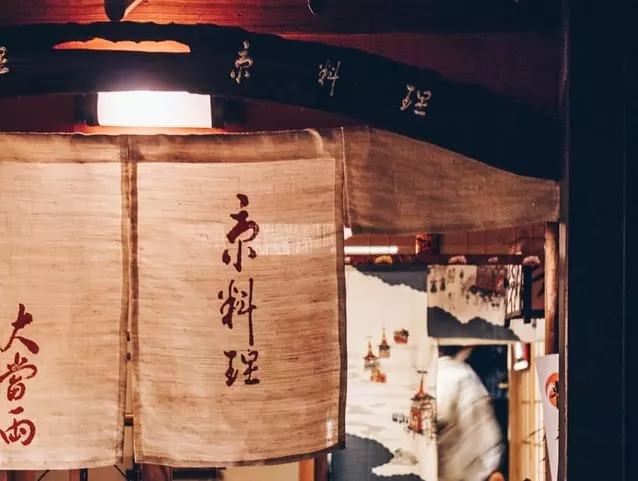 京料理
京料理
大當両